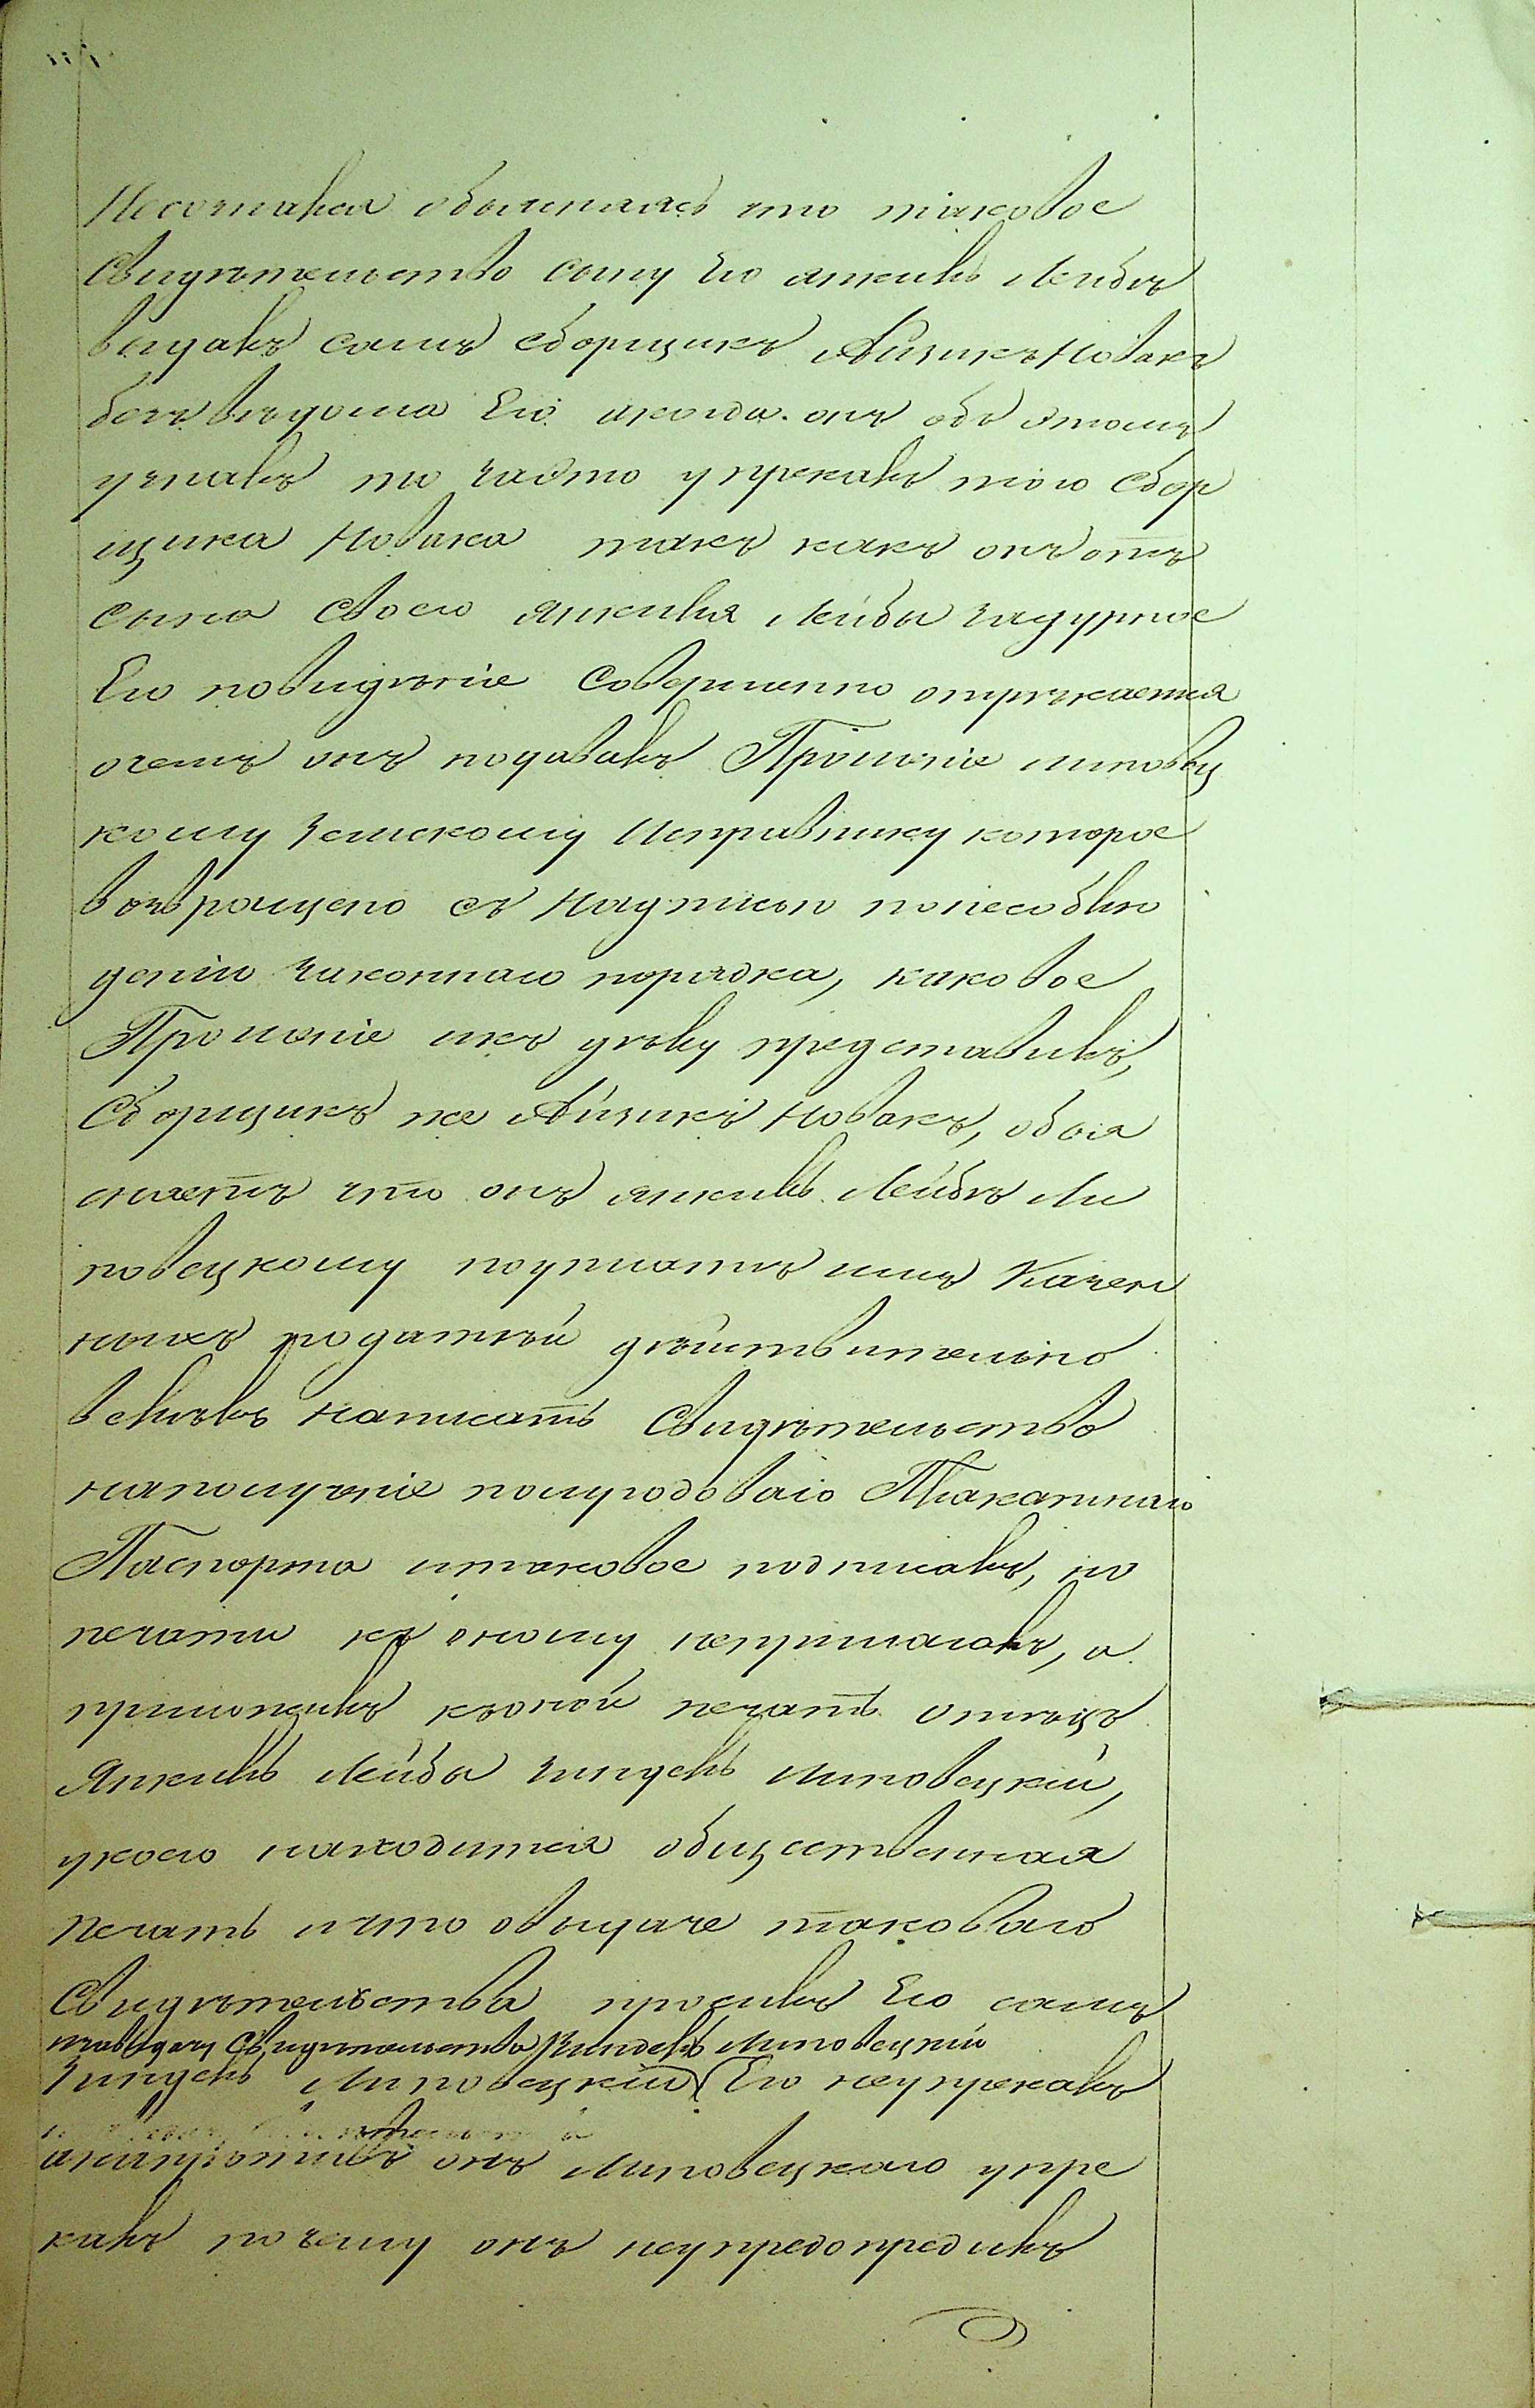 объяснилъ что таковое
Свидѣтельство сыну Его Янкилю Лейбѣ
выдалъ самъ сборщикъ Айзикъ Новакъ
безъ вѣдома Его, а когда онъ объ этомъ
узналъ то часто упрекалъ того Сбор
щика Новака такъ какъ онъ отъ
сына своего Янкиля Лейбы за дурное
Его повидѣніе Совершенно отрѣкается
очемъ онъ подавалъ Прошеніе Липовец
кому Земскому Исправнику которое
возвращено съ Надписью по несоблю
денію законнаго порядка, каковое
Прошеніе къ дѣлу представилъ,
Сборщикъ же Айзикъ Новакъ, объя
сняетъ что онъ Янкилю Лейбѣ Ли
повецкому поуплатѣ имъ Казен
ныхъ податѣй дѣйствительно
велѣлъ написать Свидѣтельство
наполученіе полугодоваго Плакатнаго
Паспорта итаковое подписалъ, но
печати къ оному неприлагалъ, а
приложилъ къоной печать Отецъ
Янкиля Лейбы Зиндель Липовецкій,
укоего находится общественная
печать ичто овыдаче таковаго
Свидѣтельства просилъ Его самъ
завыдачу Свидѣтельства Зиндель Липовецкій
Зиндель Липовецкій Его неупрекалъ
анапротивъ онъ Липовецкаго упре
калъ почему онъ неупредопредилъ